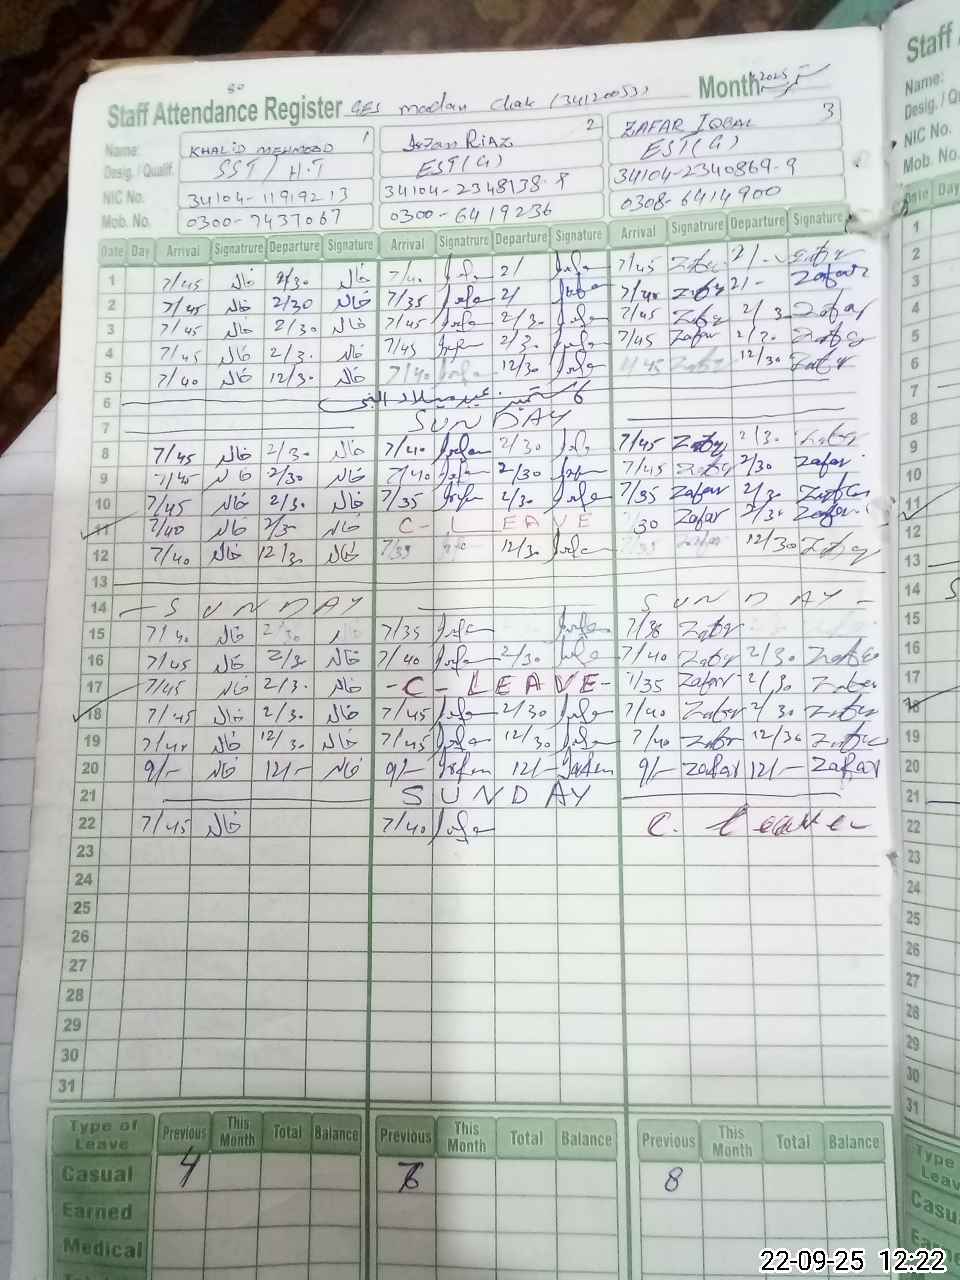 Staff Attendance Register GES madan Chak (34120053) Month
Name: KHALID MEHMOOD 1 Irfan RIAZ 2 ZAFAR IQBAL 3
Desig. / Qualif. SST / H.T EST(G) EST(G)
NIC No. 34104-11919213 34104-2348138-9 34104-2340869-9
Mob. No. 0300-7437067 0300-6419236 0308-6414900
Date Day Arrival Signatrure Departure Signature Arrival Signatrure Departure Signature Arrival Signatrure Departure Signature
1 7/45 خالد 2/30 خالد 7/40 Irfan 2/ Irfan 7/45 Zafar 2/- Zafar
2 7/45 خالد 2/30 خالد 7/35 Irfan 2/ Irfan 7/40 Zafar 2/- Zafar
3 7/45 خالد 2/30 خالد 7/45 Irfan 2/30 Irfan 7/45 Zafar 2/30 Zafar
4 7/45 خالد 2/30 خالد 7/45 Irfan 2/30 Irfan 7/45 Zafar 2/30 Zafar
5 7/40 خالد 12/30 خالد 7/40 Irfan 12/30 Irfan 7/45 Zafar 12/30 Zafar
6 عید میلاد النبی
7 SUNDAY
8 7/45 خالد 2/30 خالد 7/40 Irfan 2/30 Irfan 7/45 Zafar 2/30 Zafar
9 7/45 خالد 2/30 خالد 7/40 Irfan 2/30 Irfan 7/45 Zafar 2/30 Zafar
10 7/45 خالد 2/30 خالد 7/35 Irfan 2/30 Irfan 7/35 Zafar 2/30 Zafar
11 7/40 خالد 2/30 خالد C-LEAVE 7/30 Zafar 2/30 Zafar
12 7/40 خالد 12/30 خالد 7/35 Irfan 12/30 Irfan 7/35 Zafar 12/30 Zafar
13
14 - SUNDAY SUNDAY -
15 7/40 خالد 2/30 7/35 Irfan Irfan 7/38 Zafar
16 7/45 خالد 2/30 خالد 7/40 Irfan 2/30 Irfan 7/40 Zafar 2/30 Zafar
17 7/45 خالد 2/30 خالد -C-LEAVE- 7/35 Zafar 2/30 Zafar
18 7/45 خالد 2/30 خالد 7/45 Irfan 2/30 Irfan 7/40 Zafar 2/30 Zafar
19 7/40 خالد 12/30 خالد 7/45 Irfan 12/30 Irfan 7/40 Zafar 12/30 Zafar
20 9/- خالد 12/- خالد 9/- Irfan 12/- Irfan 9/- Zafar 12/- Zafar
21 SUNDAY
22 7/45 خالد 7/40 Irfan C. leave
23
24
25
26
27
28
29
30
31
Type of Leave Previous This Month Total Balance Previous This Month Total Balance Previous This Month Total Balance
Casual 4 8
Earned
Medical
Staff
Name:
Desig. / Qu
NIC No.
Mob. No.
Date Day
1
2
3
4
5
6
7
8
9
10
11
12
13
14 S
15
16
17
18
19
20
21
22
23
24
25
26
27
28
29
30
31
Type
Leav
Casu
22-09-25 12:22